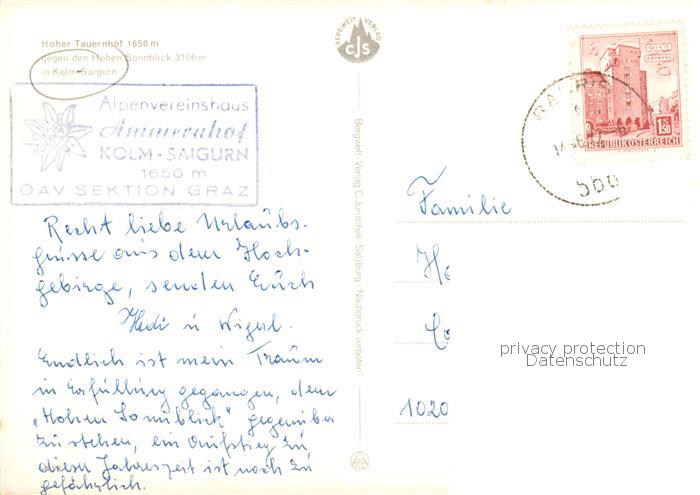 Hoher Tauernhof 1650 m
gegen den Hohen Sonnblick 3106 m
in Kolm-Saigurn
Alpenvereinshaus
Ammererhof
KOLM-SAIGURN
1650 m
ÖAV SEKTION GRAZ
Recht liebe Urlaubs-
grüsse aus dem Hoch-
gebirge, senden Euch
Hedi u
Endlich ist mein Traum
in Erfüllung gegangen, dem
"Hohen Sonnblick" gegenüber
zu stehen, ein Aufstieg zu
dieser Jahreszeit ist noch zu
gefährlich.
BERGWELT VERLAG
CJS
Bergwelt Verlag C. Jurischek, Salzburg · Nachdruck verboten!
WIEN
ERDBERG
1.50
REPUBLIK ÖSTERREICH
RAURIS
Familie
1020
privacy protection
Datenschutz